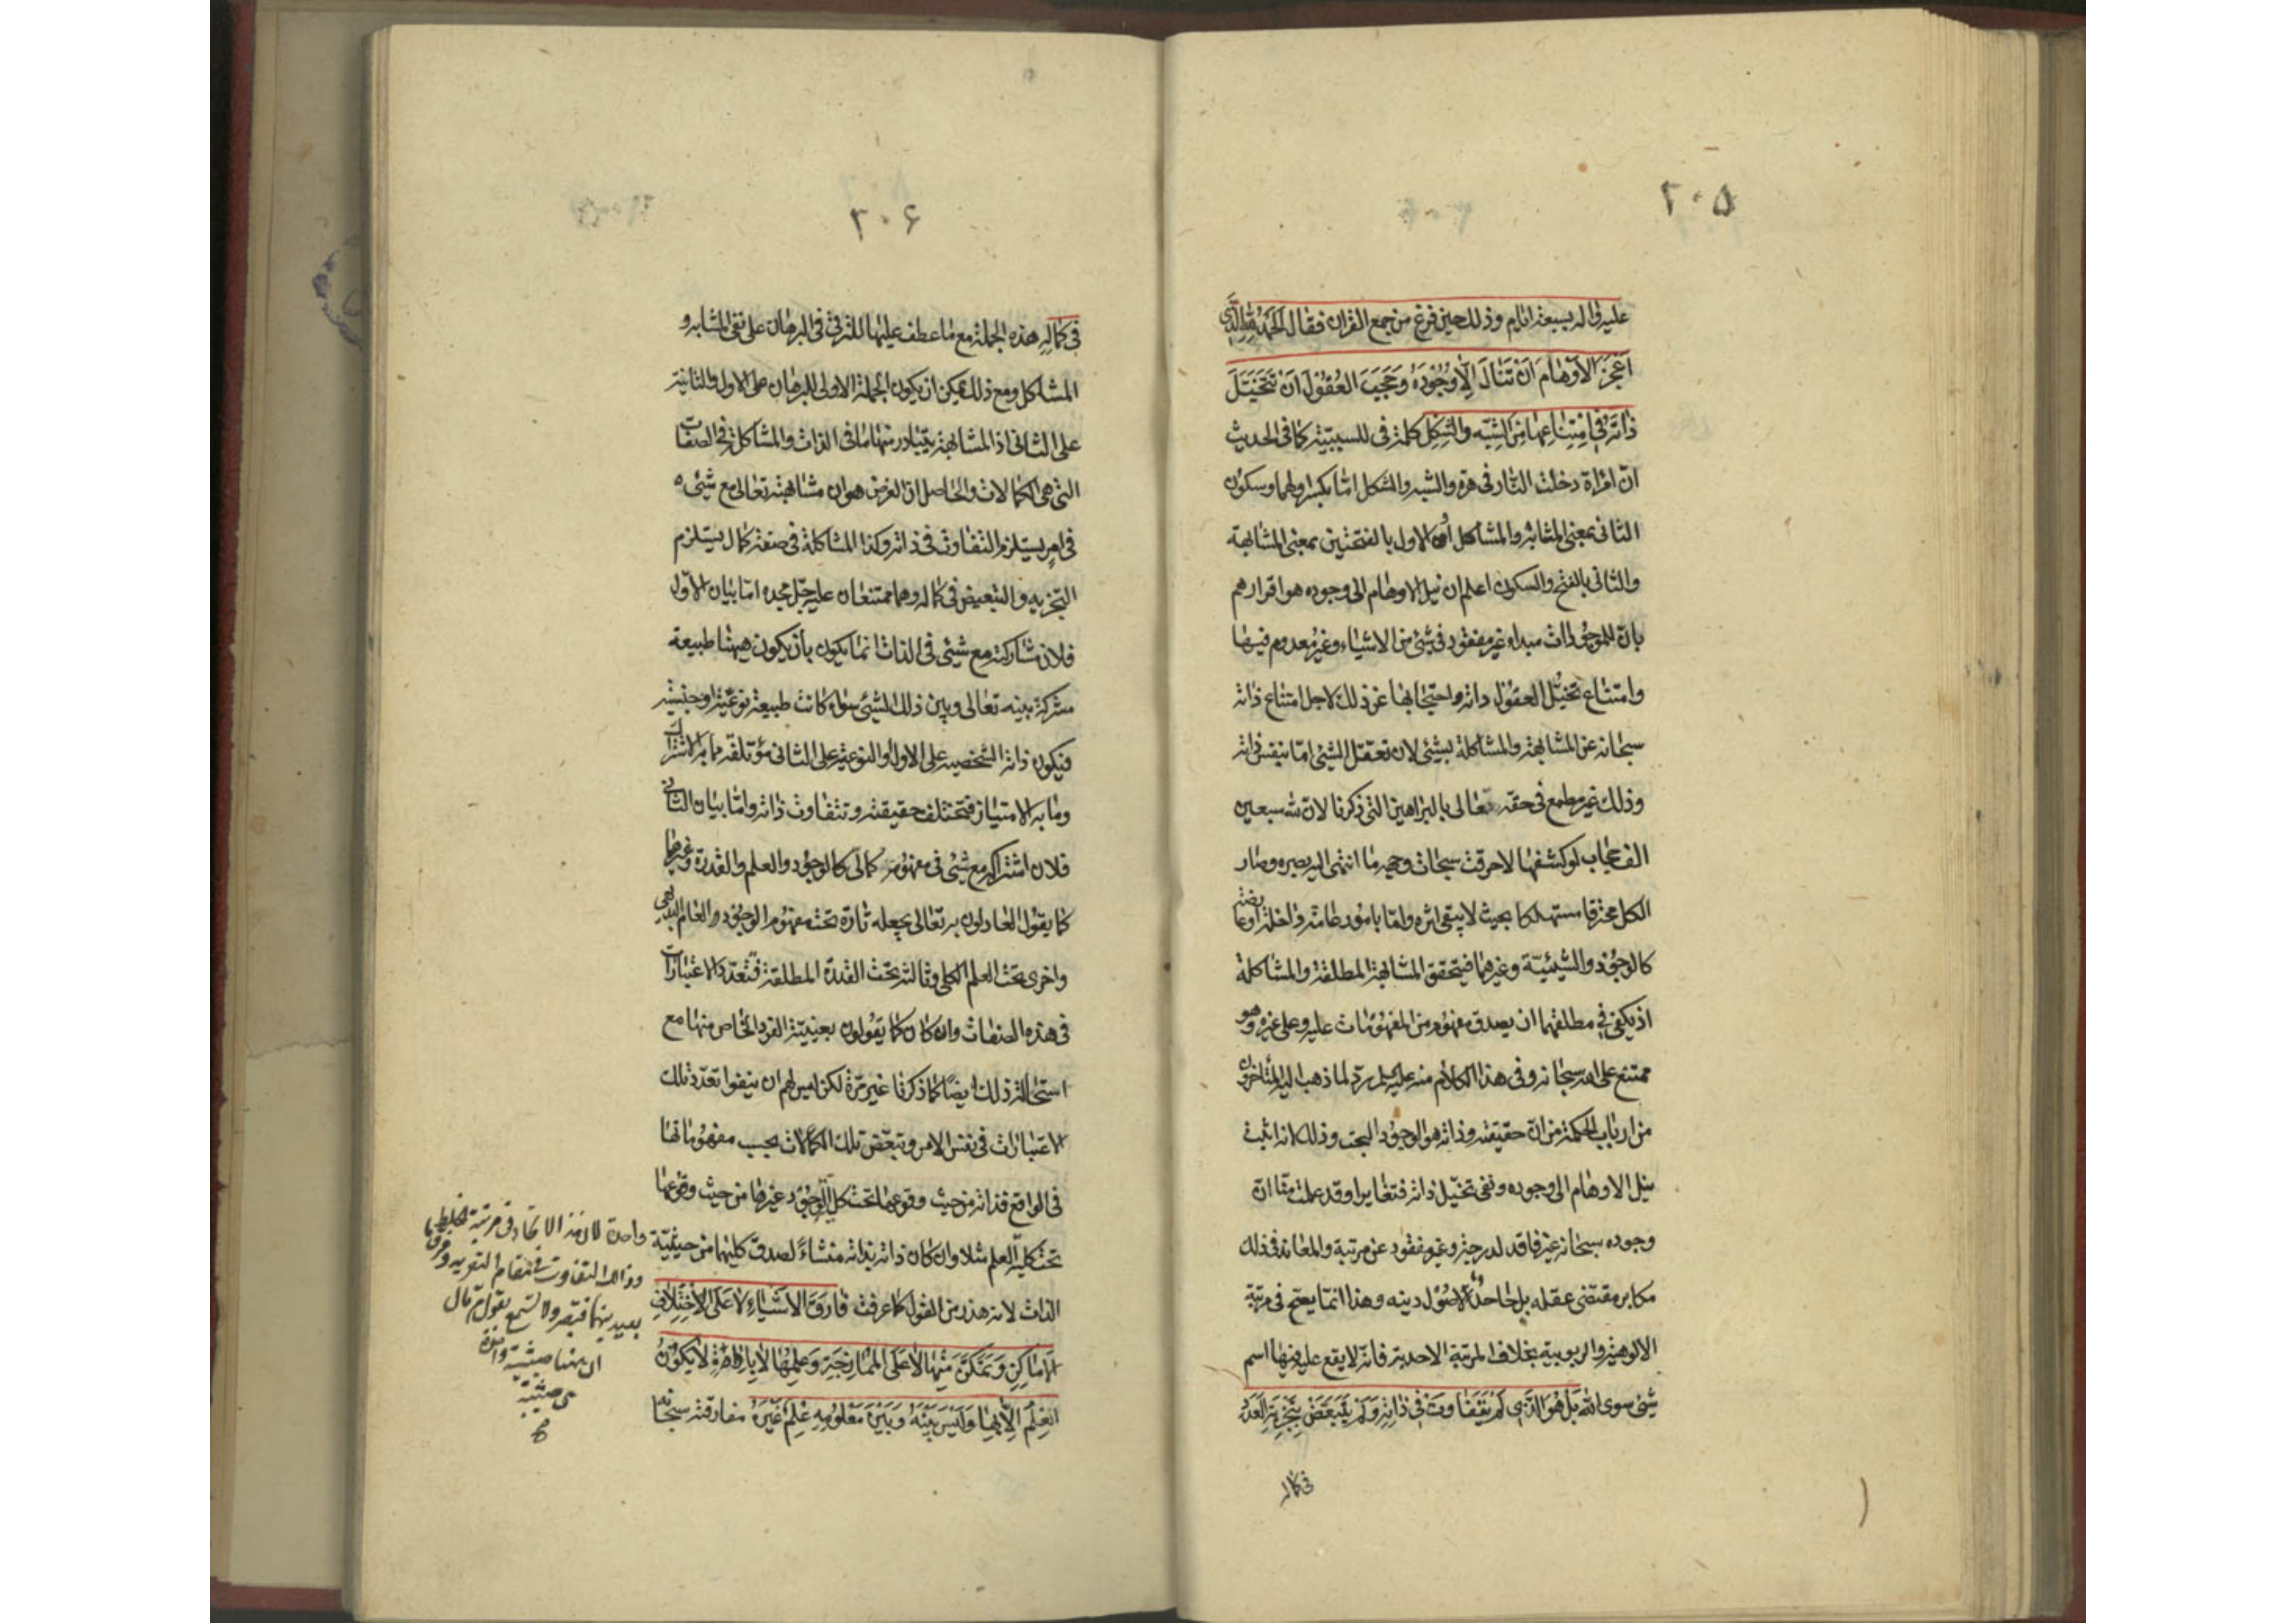 ٢٠٥
عليه واله بسبعة ايام وذلك حين فرغ من جمع القران فقال الحَمدُ للهِ الَّذي
اَعْجَزَ الاَوْهامَ اَنْ تَنالَ اِلّا وُجُوْدَهُ وَحَجَبَ العُقُوْلَ اَنْ تَتَخَيَّلَ
ذاتَه فِي امْتِناعِها مِنَ الشَّبَه وَالشَّكِل كلمة فى للسببيّة كما فى الحديث
انّ امْرأة دخلت النّار فى هرة والشبه والشكل امّا بكسر اولهما وسكون
الثانى بمعنى المشابه والمشاكل أو الاول بالفتحتين بمعنى المشابهة
والثانى بالفتح والسكون اعلم ان نيل الاوهام الى وجوده هو اقرارهم
بانّ للموجودات مبداء غير مفقود فى شئ من الاشياء وغير معدوم فيها
وامتناع تخيّل العقول ذاته واحتجابها عن ذلك لاجل امتناع ذاته
سبحانه عن المشابهة والمشاكلة بشئ لان تعقل الشئ امّا بنفس ذاته
وذلك غير مطمع فى حقه تعالى بالبراهين التى ذكرنا لانّ لله سبعين
الف حجاب لو كشفها لاحرقت سبحات وجهه ما انتهى اليه بصره وصار
الكل محترقا مستهلكا بحيث لا يبقى اثره وامّا بامور عامّة داخلة او عارضة
كالوجود والشيئيّة وغيرهما فيتحقق المشابهة المطلقة والمشاكلة
اذ يكفى فى مطلقهما ان يصدق مفهوم من المفهومات عليه وعلى غيره وهو
ممتنع على الله سبحانه وفى هذا الكلام منه عليه السلم ردّ لما ذهب اليه المتاخرون
من ارباب الحكمة من انّ حقيقته وذاته هو الوجود البحت وذلك لانه اثبت
نيل الاوهام الى وجوده ونفى تخيّل ذاته فتغايرا وقد علمت منّا انّ
وجوده سبحانه غير فاقد لدرجة وغير مفقود عن مرتبة والمعاند فى ذلك
مكابر مقتضى عقله بل جاحد لاصول دينه وهذا انّما يصحّ فى مرتبة
الالوهية والربوبية بخلاف المرتبة الاحدية فانّه لا يقع عليه فيها اسم
شئ سوى الله بَل هُوَ الَّذي لَمْ يَتَفاوَتْ في ذاتِه وَلَمْ يَتَبَعَّضْ بِتَجْزِيَةِ العَدَدِ
فى كماله
٢٠۶
في كَمالِه هذه الجملة مع ما عطف عليها للترقى فى البرهان على نفى المشابه و
المشاكل ومع ذلك يمكن ان يكون الجملة الاولى للبرهان على الاول والثانية
على الثانى اذ المشابهة يتبادر منها ما فى الذات والمشاكلة فى الصفات
التى هى الكمالات والحاصل ان الغرض هو ان مشابهته تعالى مع شئ
فى امرٍ يستلزم التفاوت فى ذاته وكذا المشاكلة فى صفة كمال يستلزم
التجزيه والتبعيض فى كماله وهما ممتنعان عليه جلّ مجده امّا بيان الاوّل
فلان مشاركته مع شئ فى الذات انما يكون بأن يكون ههنا طبيعة
مشتركة بينه تعالى وبين ذلك الشئ سواء كانت طبيعة نوعيّة او جنسية
فيكون ذاته الشخصيه على الاول والنوعية على الثانى مؤتلفة ما به الاشتراك
وما به الامتياز فتختلف حقيقته وتتفاوت ذاته وامّا بيان الثانى
فلان اشتراكه مع شئ فى مفهوم كمالى كالوجود والعلم والقدرة وغيرها
كما يقول العادلون به تعالى بجعله تارة تحت مفهوم الوجود العام البديهى
واخرى تحت العلم الكلى وثالثة تحت القدرة المطلقة فتعدّد الاعتبارات
فى هذه الصفات وان كان كما يقولون بعينيّة الفرد الخاص منها مع
استحالة ذلك ايضًا كما ذكرنا غير مرّة لكن ليس لهم ان ينفوا تعدّد تلك
الاعتبارات فى نفس الامر وتبعّض تلك الكمالات بحسب مفهوماتها
فى الواقع فذاته من حيث وقوعها تحت كلى الوجود غيرها من حيث وقوعها
تحت كلية العلم مثلا وان كان ذاته بذاته منشاءً لصدق كليهما من حيثيّة
الذات لانه هذر من القول كما عرفت فارَقَ الاَشْياءَ لا عَلَى الاِخْتِلافِ
الاَماكِنِ وَتَمَكَّنَ مِنْها لا عَلَى المُمازَجَةِ وَعَلِمَها لا بِاَداةٍ لا يَكُوْنُ
العِلْمُ اِلّا بِها وَلَيْسَ بَيْنَهُ وَبَيْنَ مَعْلُومِهِ عِلْمُ غَيْرِهِ مفارقته سبحانه
واحدة لان هذا الاتحاد فى مرتبة
وذلك التفاوت فى مقام التعريه وفرق
بعيد بينهما فتبصر ولا تسمع بقول من قال
ان هنا حيثية واحدة